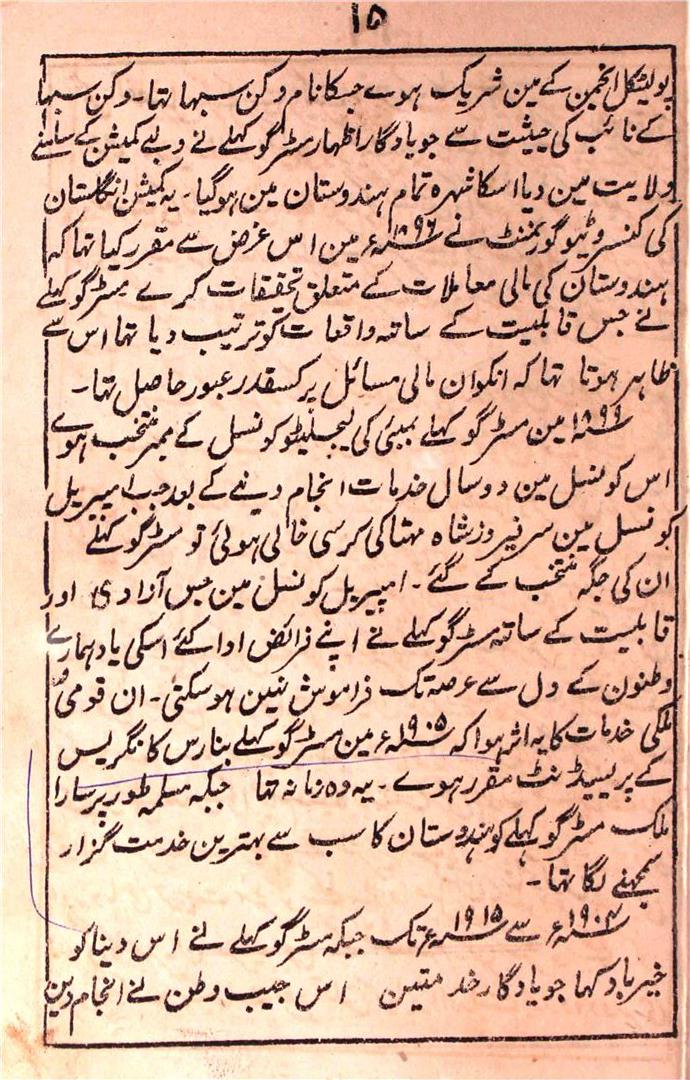 ۱۵
پولیٹکل انجمن کے مین شریک ہوے جسکا نام دکن سبہا تہا۔ دکن سبہا
کے نائب کی حیثیت سے جو یادگار اظہار مسٹر گوکہلے نے ویلبے کمیشن کے سامنے
ولایت مین دیا اسکا شہرہ تمام ہندوستان مین ہوگیا۔ یہ کمیشن انگلستان
کی کنسروٹیو گورنمنٹ نے ۱۸۹۶ء مین اس غرض سے مقرر کیا تہا کہ
ہندوستان کی مالی معاملات کے متعلق تحقیقات کرے مسٹر گوکہلے
نے جس قابلیت کے ساتہہ واقعات کو ترتیب دیا تہا اس سے
ظاہر ہوتا تہا کہ انکو ان مالی مسائل پر کسقدر عبور حاصل تہا۔
۱۸۹۹ء مین مسٹر گوکہلے بمبئی کی لیجسلیٹو کونسل کے ممبر منتخب ہوے
اس کونسل مین دو سال خدمات انجام دینے کے بعد جب امپیریل
کونسل مین سر فیروز شاہ مہتا کی کرسی خالی ہوئی تو مسٹر گوکہلے
ان کی جگہ منتخب کے گئے۔ امپیریل کونسل مین جس آزادی اور
قابلیت کے ساتہہ مسٹر گوکہلے نے اپنے فرائض ادا کئے اسکی یاد ہمارے
وطنون کے دل سے عرصہ تک فراموش نہین ہوسکتی۔ ان قومی و
ملکی خدمات کا یہ اثر ہوا کہ ۱۹۰۵ء مین مسٹر گوکہلے بنارس کانگریس
کے پریسیڈنٹ مقرر ہوے۔ یہ وہ زمانہ تہا جبکہ مسلمہ طور پر سارا
ملک مسٹر گوکہلے کو ہندوستان کا سب سے بہترین خدمت گزار
سمجہنے لگا تہا۔
۱۹۰۴ء سے ۱۹۱۵ء تک جبکہ مسٹر گوکہلے نے اس دینا کو
خیر باد کہا جو یادگار خدمتین اس حبیب وطن نے انجام دین